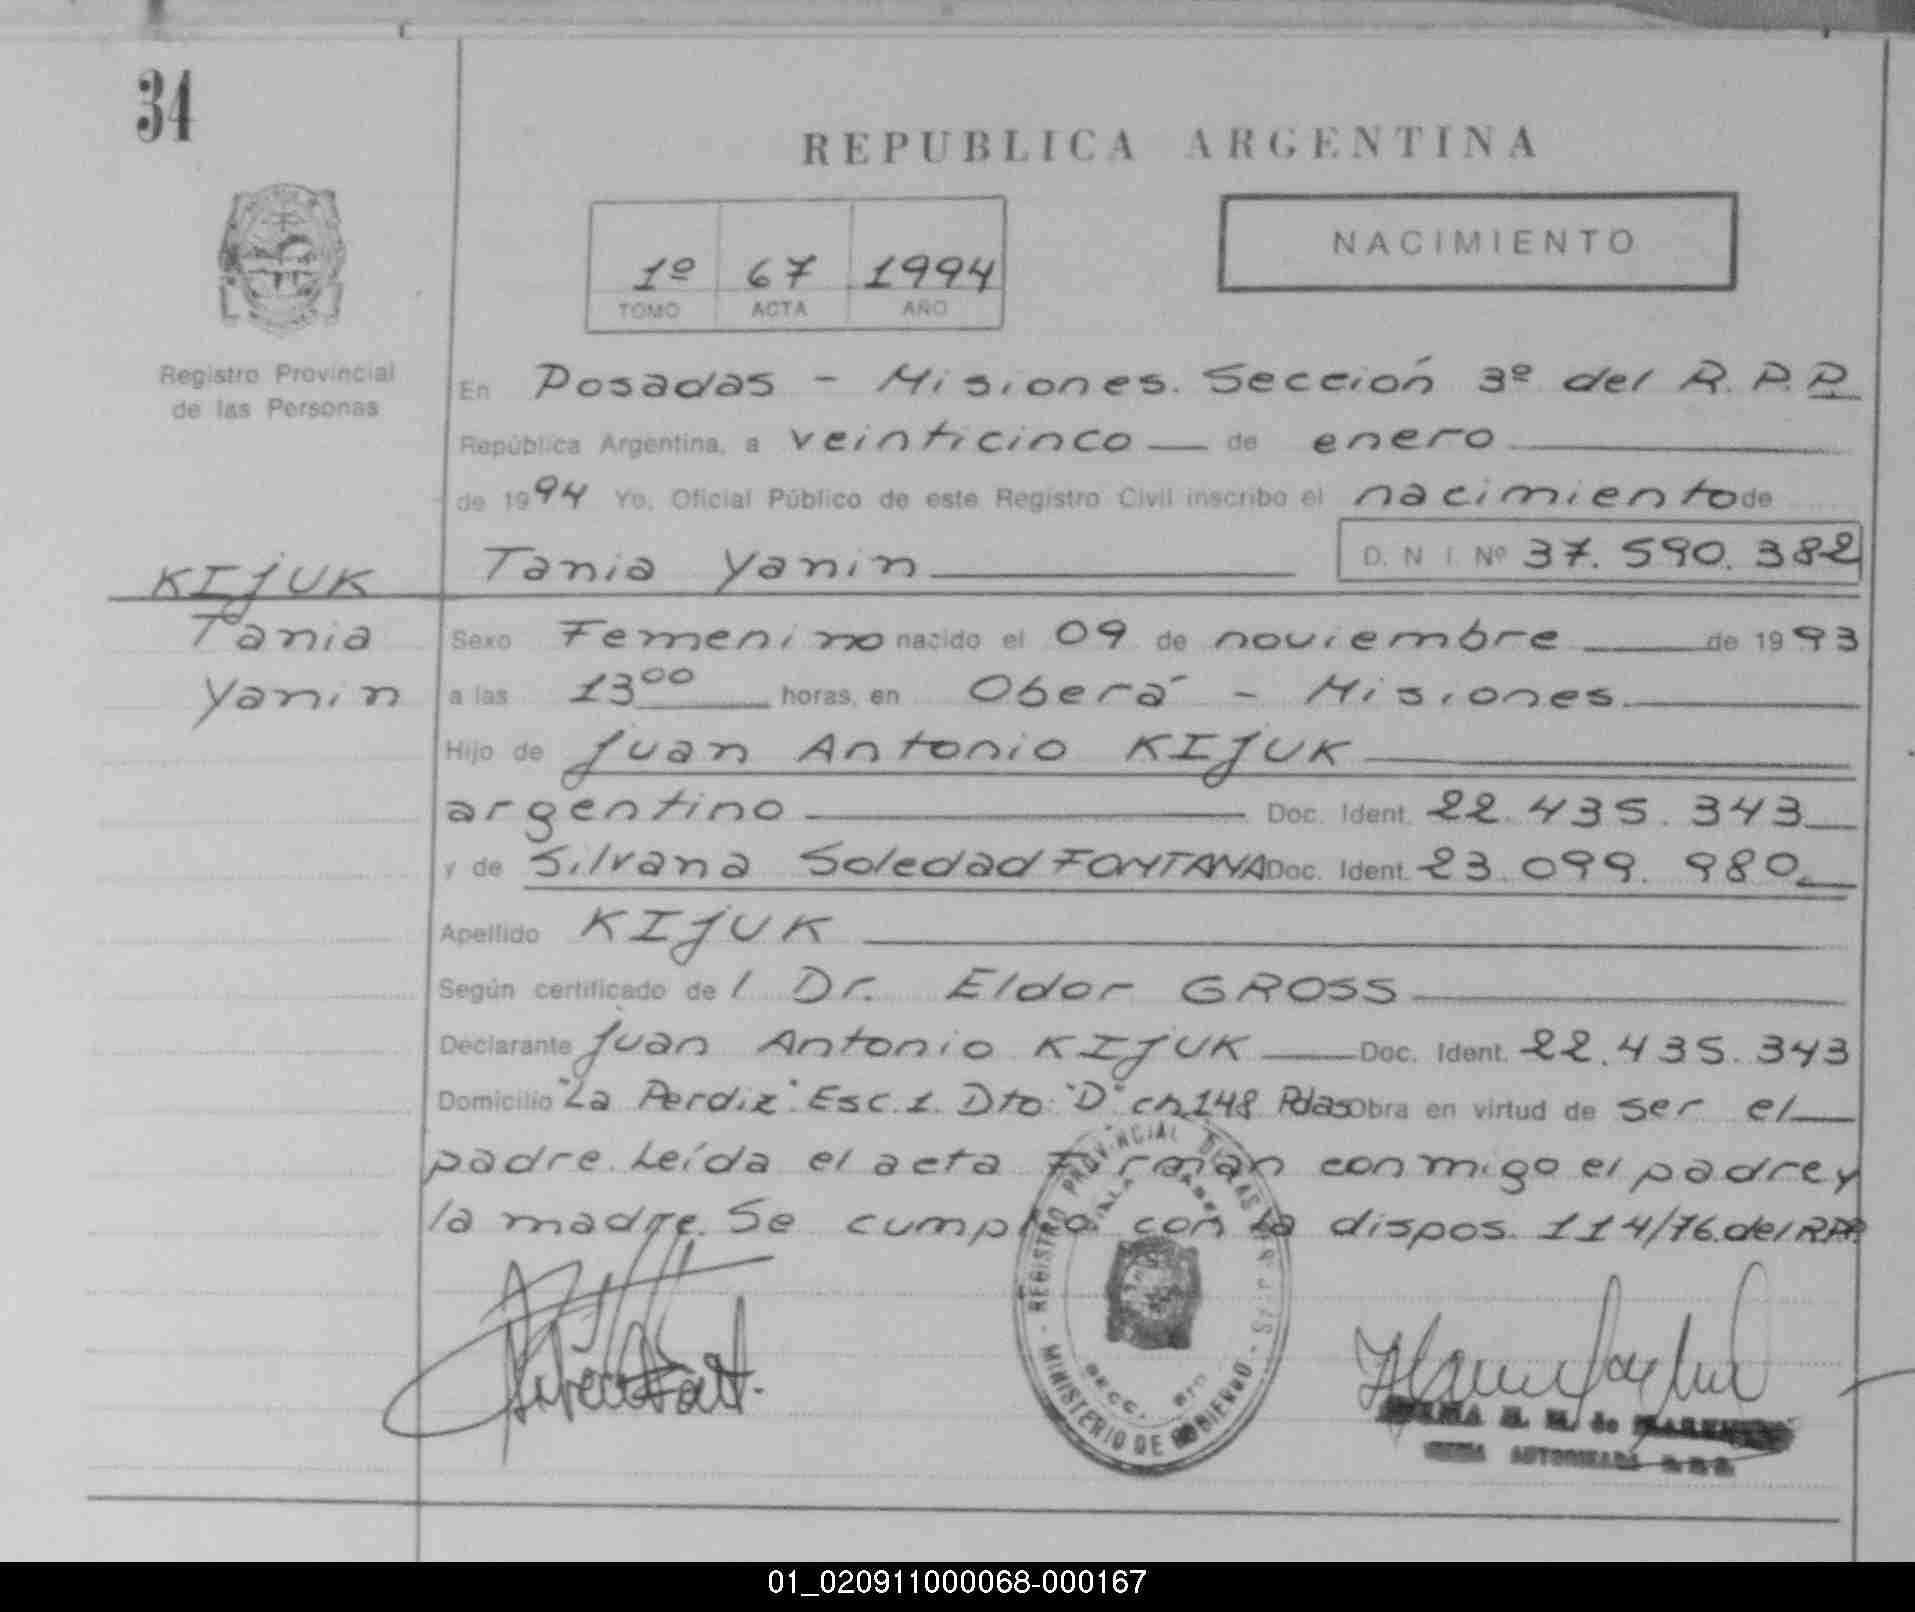 34
REPUBLICA ARGENTINA
1º 67 1994
TOMO ACTA AÑO
NACIMIENTO
Registro Provincial
de las Personas
En Posadas - Misiones. Sección 3º del R.P.P.
República Argentina, a veinticinco de enero
de 1994 Yo, Oficial Público de este Registro Civil inscribo el nacimiento de
KIJUK Tania Yanin D. N. I. Nº 37.590.382
Tania Sexo Femenino nacido el 09 de noviembre de 1993
Yanin a las 13⁰⁰ horas, en Oberá - Misiones.
Hijo de Juan Antonio KIJUK
argentino Doc. Ident. 22.435.343
y de Silvana Soledad FONTANA Doc. Ident. 23.099.980
Apellido KIJUK
Según certificado de l Dr. Eldor GROSS
Declarante Juan Antonio KIJUK Doc. Ident. 22.435.343
Domicilio "La Perdiz" Esc. 1. Dto "D" ch 148 Pdas Obra en virtud de ser el
padre. Leída el acta Firman conmigo el padre y
la madre. Se cumplió con la dispos. 114/76 del RPP.
REGISTRO PROVINCIAL DE LAS PERSONAS
MINISTERIO DE GOBIERNO
SECC.
de
AUTORIZADA
01_020911000068-000167